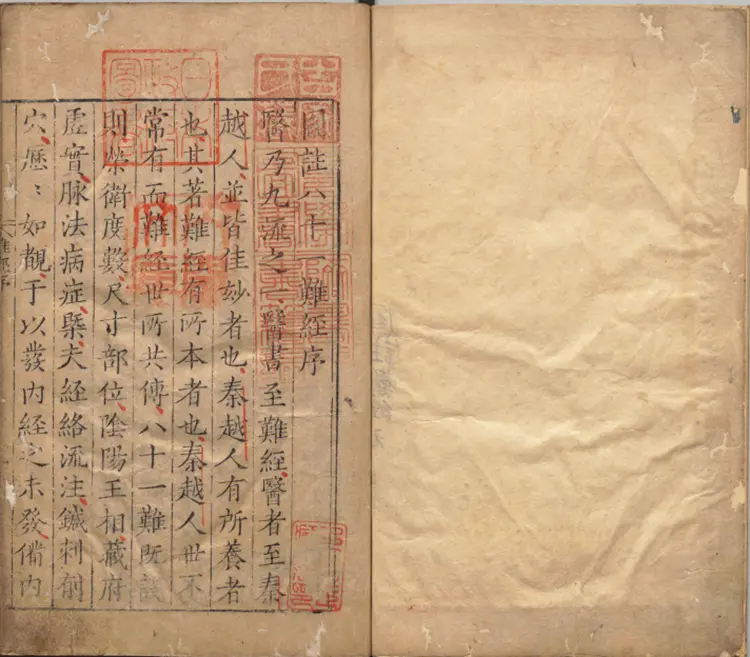 圖註八十一難經序
醫乃九流之一醫書至難經醫者至秦
越人並皆佳妙者也秦越人有所養者
也其著難經有所本者也秦越人世不
常有而難經世所共傳八十一難既設
則榮衛度數尺寸部位陰陽王相藏府
虛實脉法病症槩夫經絡流注鍼刺俞
穴歷〻如覩于以發內經之未發備內